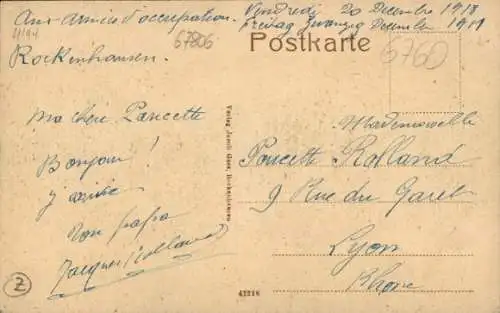 Aux armées d'occupation.
Vendredi 20 Decembre 1918
Freitag zwanzig Decembre 1918
4194
67806
Postkarte
6760
Rockenhausen.
Ma chère Poucette
Bonjour !
j'arrive
Ton papa
Jacques Rolland
Mademoiselle
Poucette Rolland
9 Rue du Garet
Lyon
Rhône
Verlag Jacob Gass, Rockenhausen
42216
Z